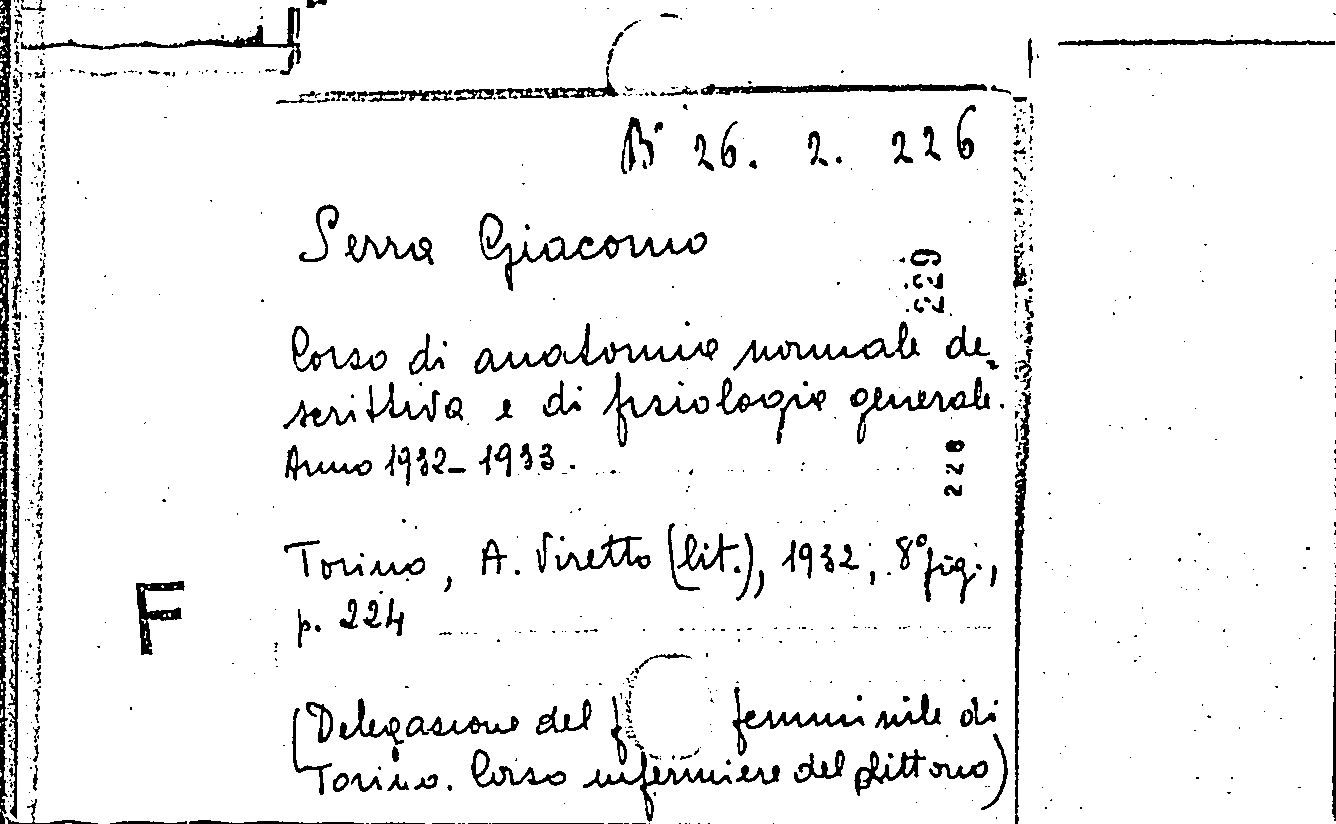 B 26. 2. 226
Serra Giacomo
229
Corso di anatomia normale de
scrittiva e di fisiologia generale.
Anno 1932-1933.
228
Torino, A. Viretto (lit.), 1932, 8° fig.,
p. 224
F
(Delegazione del f femminile di
Torino. Corso infermiere del Littorio)